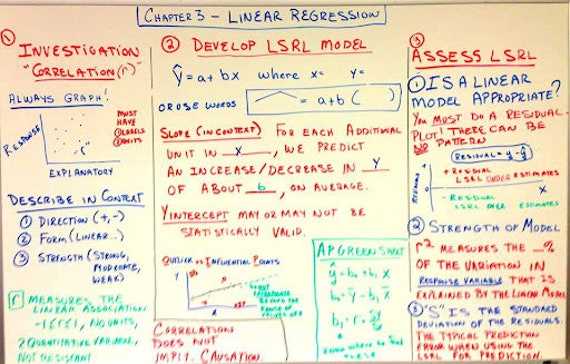 CHAPTER 3 - LINEAR REGRESSION
① INVESTIGATION
"CORRELATION (r)"
ALWAYS GRAPH!
RESPONSE
MUST
HAVE
① LABELS
② UNITS
EXPLANATORY
DESCRIBE IN CONTEXT
① DIRECTION (+,-)
② FORM (LINEAR...)
③ STRENGTH (STRONG,
MODERATE,
WEAK)
r MEASURES THE
LINEAR ASSOCIATION
-1≤r≤1, NO UNITS,
2 QUANTITATIVE VARIABLES,
NOT RESISTANT
② DEVELOP LSRL MODEL
ŷ = a + bx where x= y=
OR USE WORDS = a+b ( )
SLOPE (IN CONTEXT) FOR EACH ADDITIONAL
UNIT IN x, WE PREDICT
AN INCREASE/DECREASE IN y
OF ABOUT b, ON AVERAGE.
Y INTERCEPT MAY OR MAY NOT BE
STATISTICALLY VALID.
OUTLIER VS INFLUENTIAL POINTS
Y
X
CORRELATION
DOES NOT
IMPLY CAUSATION
AP GREEN SHEET
ŷ = b₀ + b₁ x
b₀ = ȳ - b₁ x̄
b₁ = r
KNOW WHERE TO FIND
THESE
③
ASSESS LSRL
① IS A LINEAR
MODEL APPROPRIATE?
YOU MUST DO A RESIDUAL
PLOT! THERE CAN BE
NO PATTERN
RESIDUAL = y - ŷ
RESIDUAL
+ RESIDUAL
LSRL UNDER ESTIMATES
X
- RESIDUAL
LSRL OVER ESTIMATES
② STRENGTH OF MODEL
r² MEASURES THE __%
OF THE VARIATION IN
RESPONSE VARIABLE THAT IS
EXPLAINED BY THE LINEAR MODEL
③ 'S' IS THE STANDARD
DEVIATION OF THE RESIDUALS.
THE TYPICAL PREDICTION
ERROR WHEN USING THE
LSRL FOR PREDICTION.